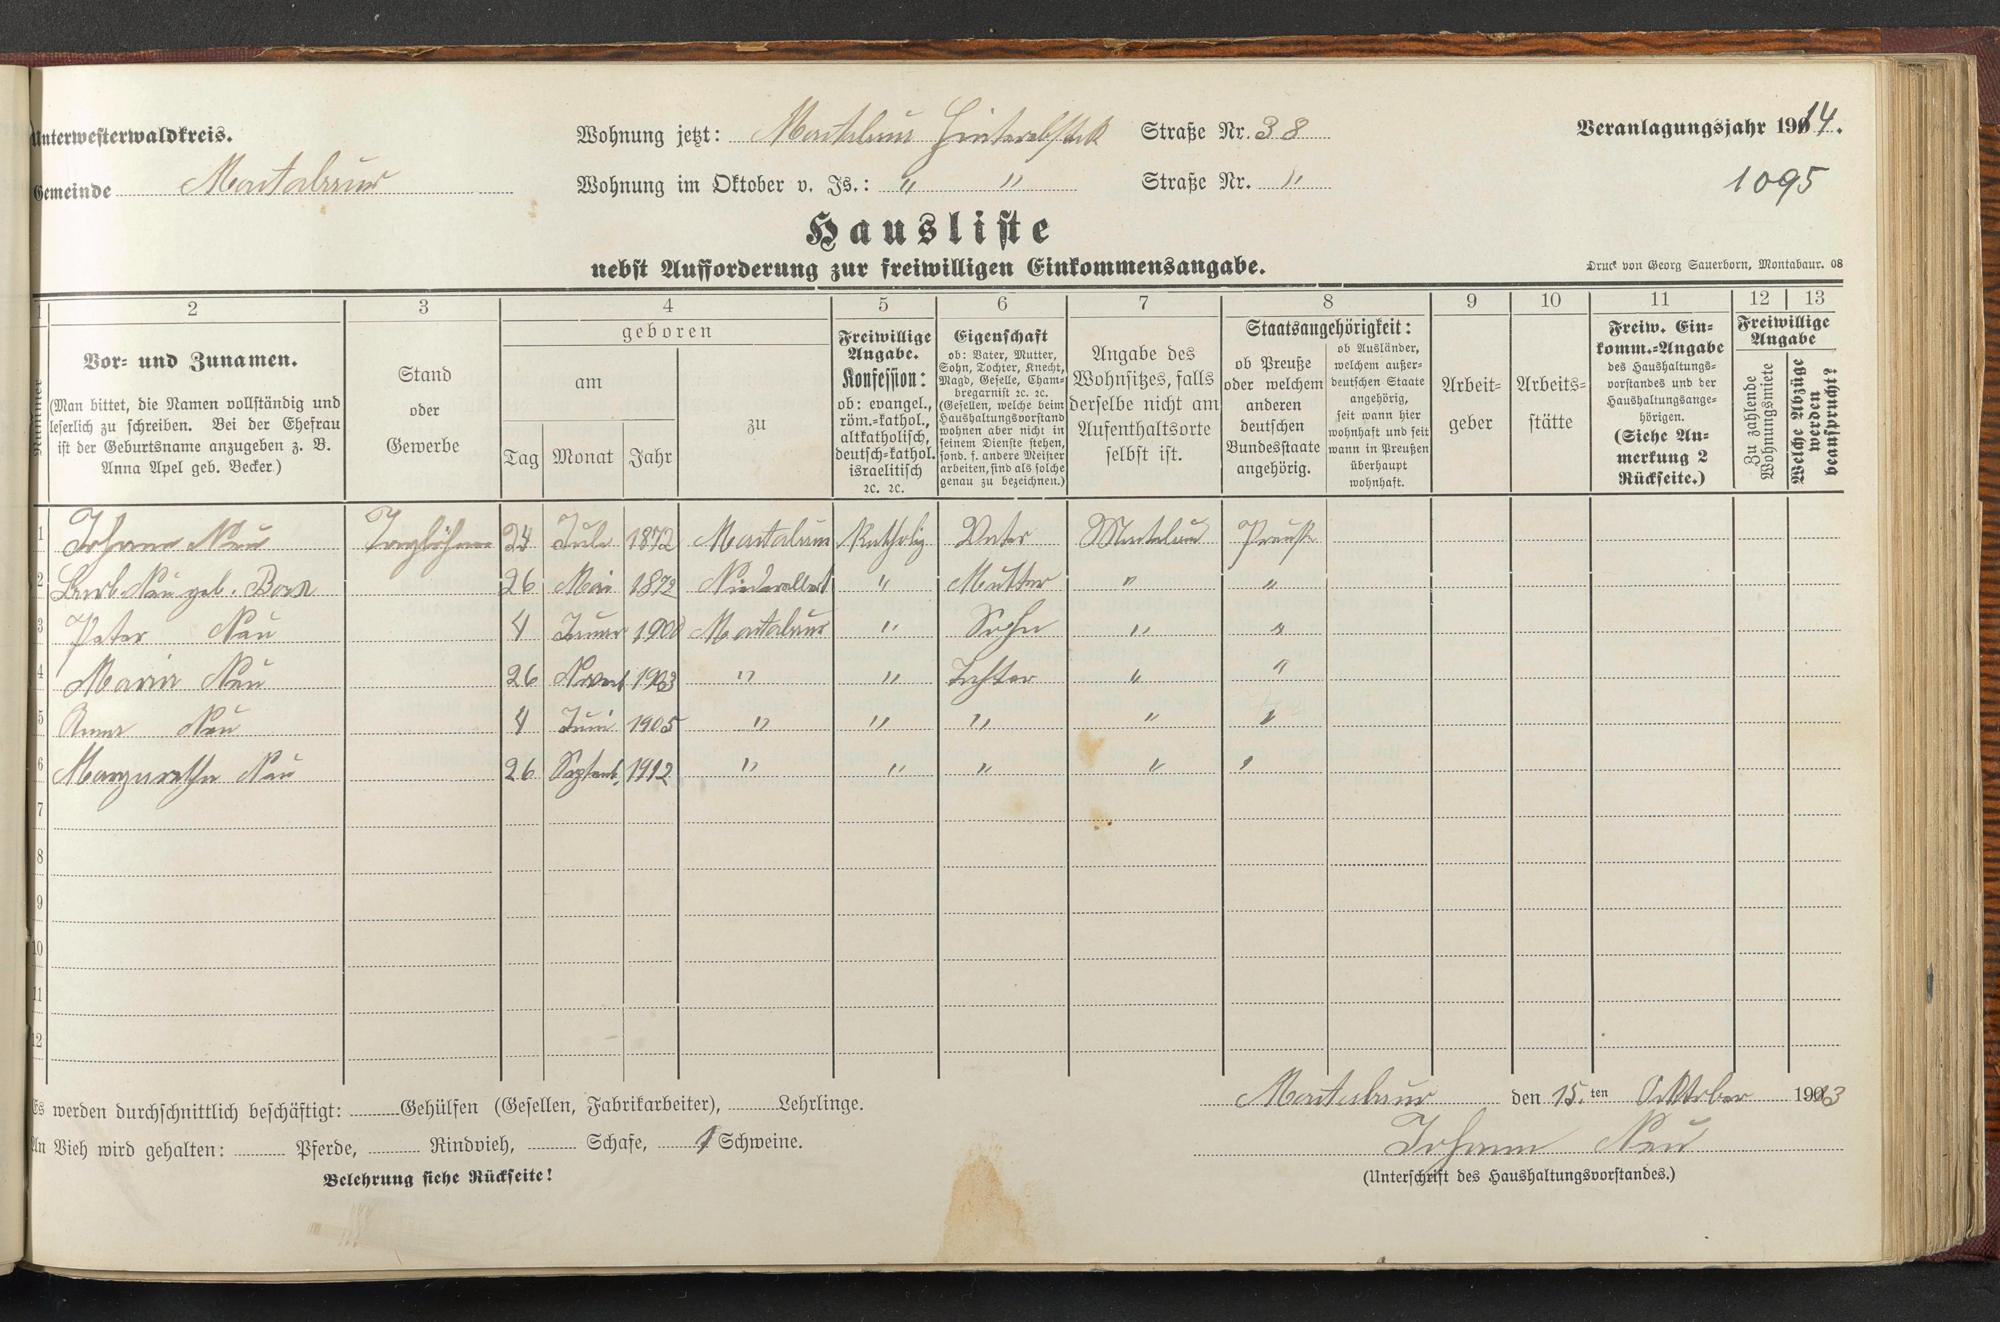 Unterwesterwaldkreis.
Wohnung jetzt: Montabaur Straße Nr. 38
Veranlagungsjahr 1914.
Gemeinde Montabaur
Wohnung im Oktober v. Js.: " " Straße Nr. "
1095
Hausliste
nebst Aufforderung zur freiwilligen Einkommensangabe.
Druck von Georg Sauerborn, Montabaur. 08
1 2 3 4 5 6 7 8 9 10 11 12 13
Nummer
Vor- und Zunamen.
(Man bittet, die Namen vollständig und
leserlich zu schreiben. Bei der Ehefrau
ist der Geburtsname anzugeben z. B.
Anna Apel geb. Becker.)
Stand
oder
Gewerbe
geboren
am
Tag Monat Jahr
zu
Freiwillige
Angabe.
Konfession:
ob: evangel.,
röm.-kathol.,
altkatholisch,
deutsch-kathol.
israelitisch
ꝛc. ꝛc.
Eigenschaft
ob: Vater, Mutter,
Sohn, Tochter, Knecht,
Magd, Geselle, Cham-
bregarnist ꝛc. ꝛc.
(Gesellen, welche beim
Haushaltungsvorstand
wohnen aber nicht in
seinem Dienste stehen,
sond. f. andere Meister
arbeiten, sind als solche
genau zu bezeichnen.)
Angabe des
Wohnsitzes, falls
derselbe nicht am
Aufenthaltsorte
selbst ist.
Staatsangehörigkeit:
ob Preuße
oder welchem
anderen
deutschen
Bundesstaate
angehörig.
ob Ausländer,
welchem außer-
deutschen Staate
angehörig,
seit wann hier
wohnhaft und seit
wann in Preußen
überhaupt
wohnhaft.
Arbeit-
geber
Arbeits-
stätte
Freiw. Ein-
komm.-Angabe
des Haushaltungs-
vorstandes und der
Haushaltungsange-
hörigen.
(Siehe An-
merkung 2
Rückseite.)
Freiwillige
Angabe
Zu zahlende
Wohnungsmiete
Welche Abzüge
werden
beansprucht?
1 Johann Neu Taglöhner 24 Juli 1872 Montabaur Katholig Vater Montabaur Preuße
2 Barb. Neu geb. 26 Mai 1872 Niederelbert " Mutter " "
3 Peter Neu 4 Januar 1900 Montabaur " Sohn " "
4 Maria Neu 26 1903 " " Tochter " "
5 Anna Neu 4 Juni 1905 " " " " "
6 Margaretha Neu 26 Septemb. 1912 " " " " "
7
8
9
10
11
12
Es werden durchschnittlich beschäftigt: Gehülfen (Gesellen, Fabrikarbeiter), Lehrlinge.
An Vieh wird gehalten: Pferde, Rindvieh, Schafe, 1 Schweine.
Belehrung siehe Rückseite!
Montabaur den 15.ten Oktober 1913
Johann Neu
(Unterschrift des Haushaltungsvorstandes.)